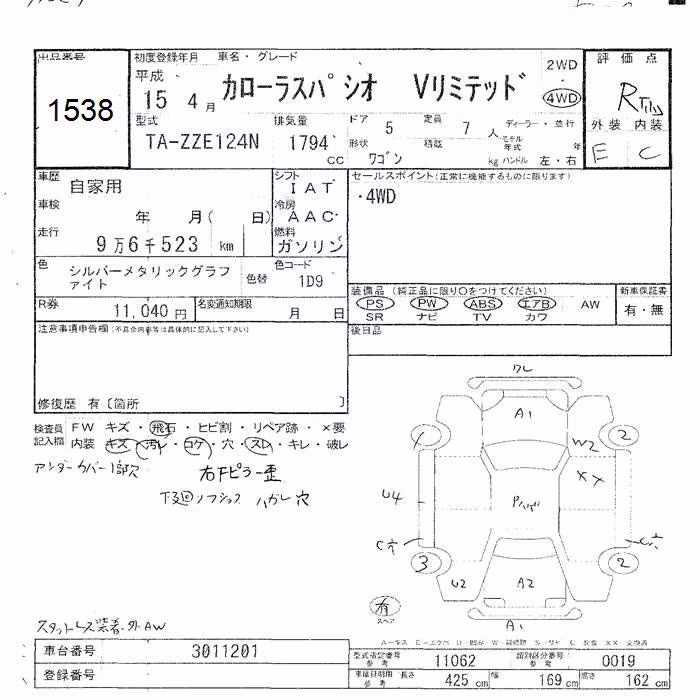 出品番号
1538
初度登録年月 車名・グレード
平成
15 4月
カローラスパシオ Vリミテッド
2WD
・
4WD
評価点
外装 内装
E C
型式
TA-ZZE124N
排気量
1794 CC
ドア 5
定員 7人
形状 ワゴン
積数 kg
ディーラー・並行
モデル年式 年
ハンドル 左・右
車歴 自家用
車検 年 月( 日)
走行 9万6千523 km
シフト IAT
冷房 AAC
燃料 ガソリン
セールスポイント(正常に機能するものに限ります)
・4WD
色 シルバーメタリックグラファイト
色替
色コード 1D9
装備品 (純正品に限り○をつけてください)
PS PW ABS エアB AW
SR ナビ TV カワ
新車保証書
有・無
R券 11,040円
名変通知期限 月 日
後日品
注意事項申告欄(不具合内容等は具体的に記入して下さい)
修復歴 有〔箇所 〕
検査員記入欄
FW キズ・飛石・ヒビ割・リペア跡・×要
内装 キズ・汚れ・コゲ・穴・スレ・キレ・破レ
アンダーカバー1部欠
右Fピラー歪
下廻 ハガレ 穴
ワレ
A1
W2
XX
2
U4
C穴
3
U2
A2
2
A1
有
スペア
スタットレス装着・外AW
車台番号 3011201
登録番号
型式指定番号 参考 11062
類別区分番号 参考 0019
車庫証明用 参考 長さ 425 cm 幅 169 cm 高さ 162 cm